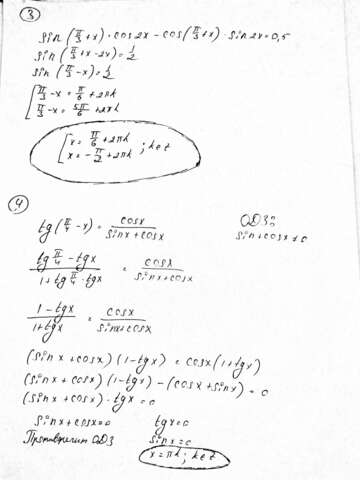 ③
sin(π/3+x)·cos2x − cos(π/3+x)·sin2x=0,5
sin(π/3+x−2x)=1/2
sin(π/3−x)=1/2
[π/3−x=π/6+2πk
π/3−x=5π/6+2πk
[x=π/6+2πk
x=−π/2+2πk ; k∈Z
④
tg(π/4−x)=cosx/(sinx+cosx) ОДЗ:
sinx+cosx≠0
(tgπ/4−tgx)/(1+tgπ/4·tgx)=cosx/(sinx+cosx)
(1−tgx)/(1+tgx)=cosx/(sinx+cosx)
(sinx+cosx)(1−tgx)=cosx(1+tgx)
(sinx+cosx)(1−tgx)−(cosx+sinx)=0
(sinx+cosx)·tgx=0
sinx+cosx=0 tgx=0
Противоречит ОДЗ sinx=0
x=πk; k∈Z